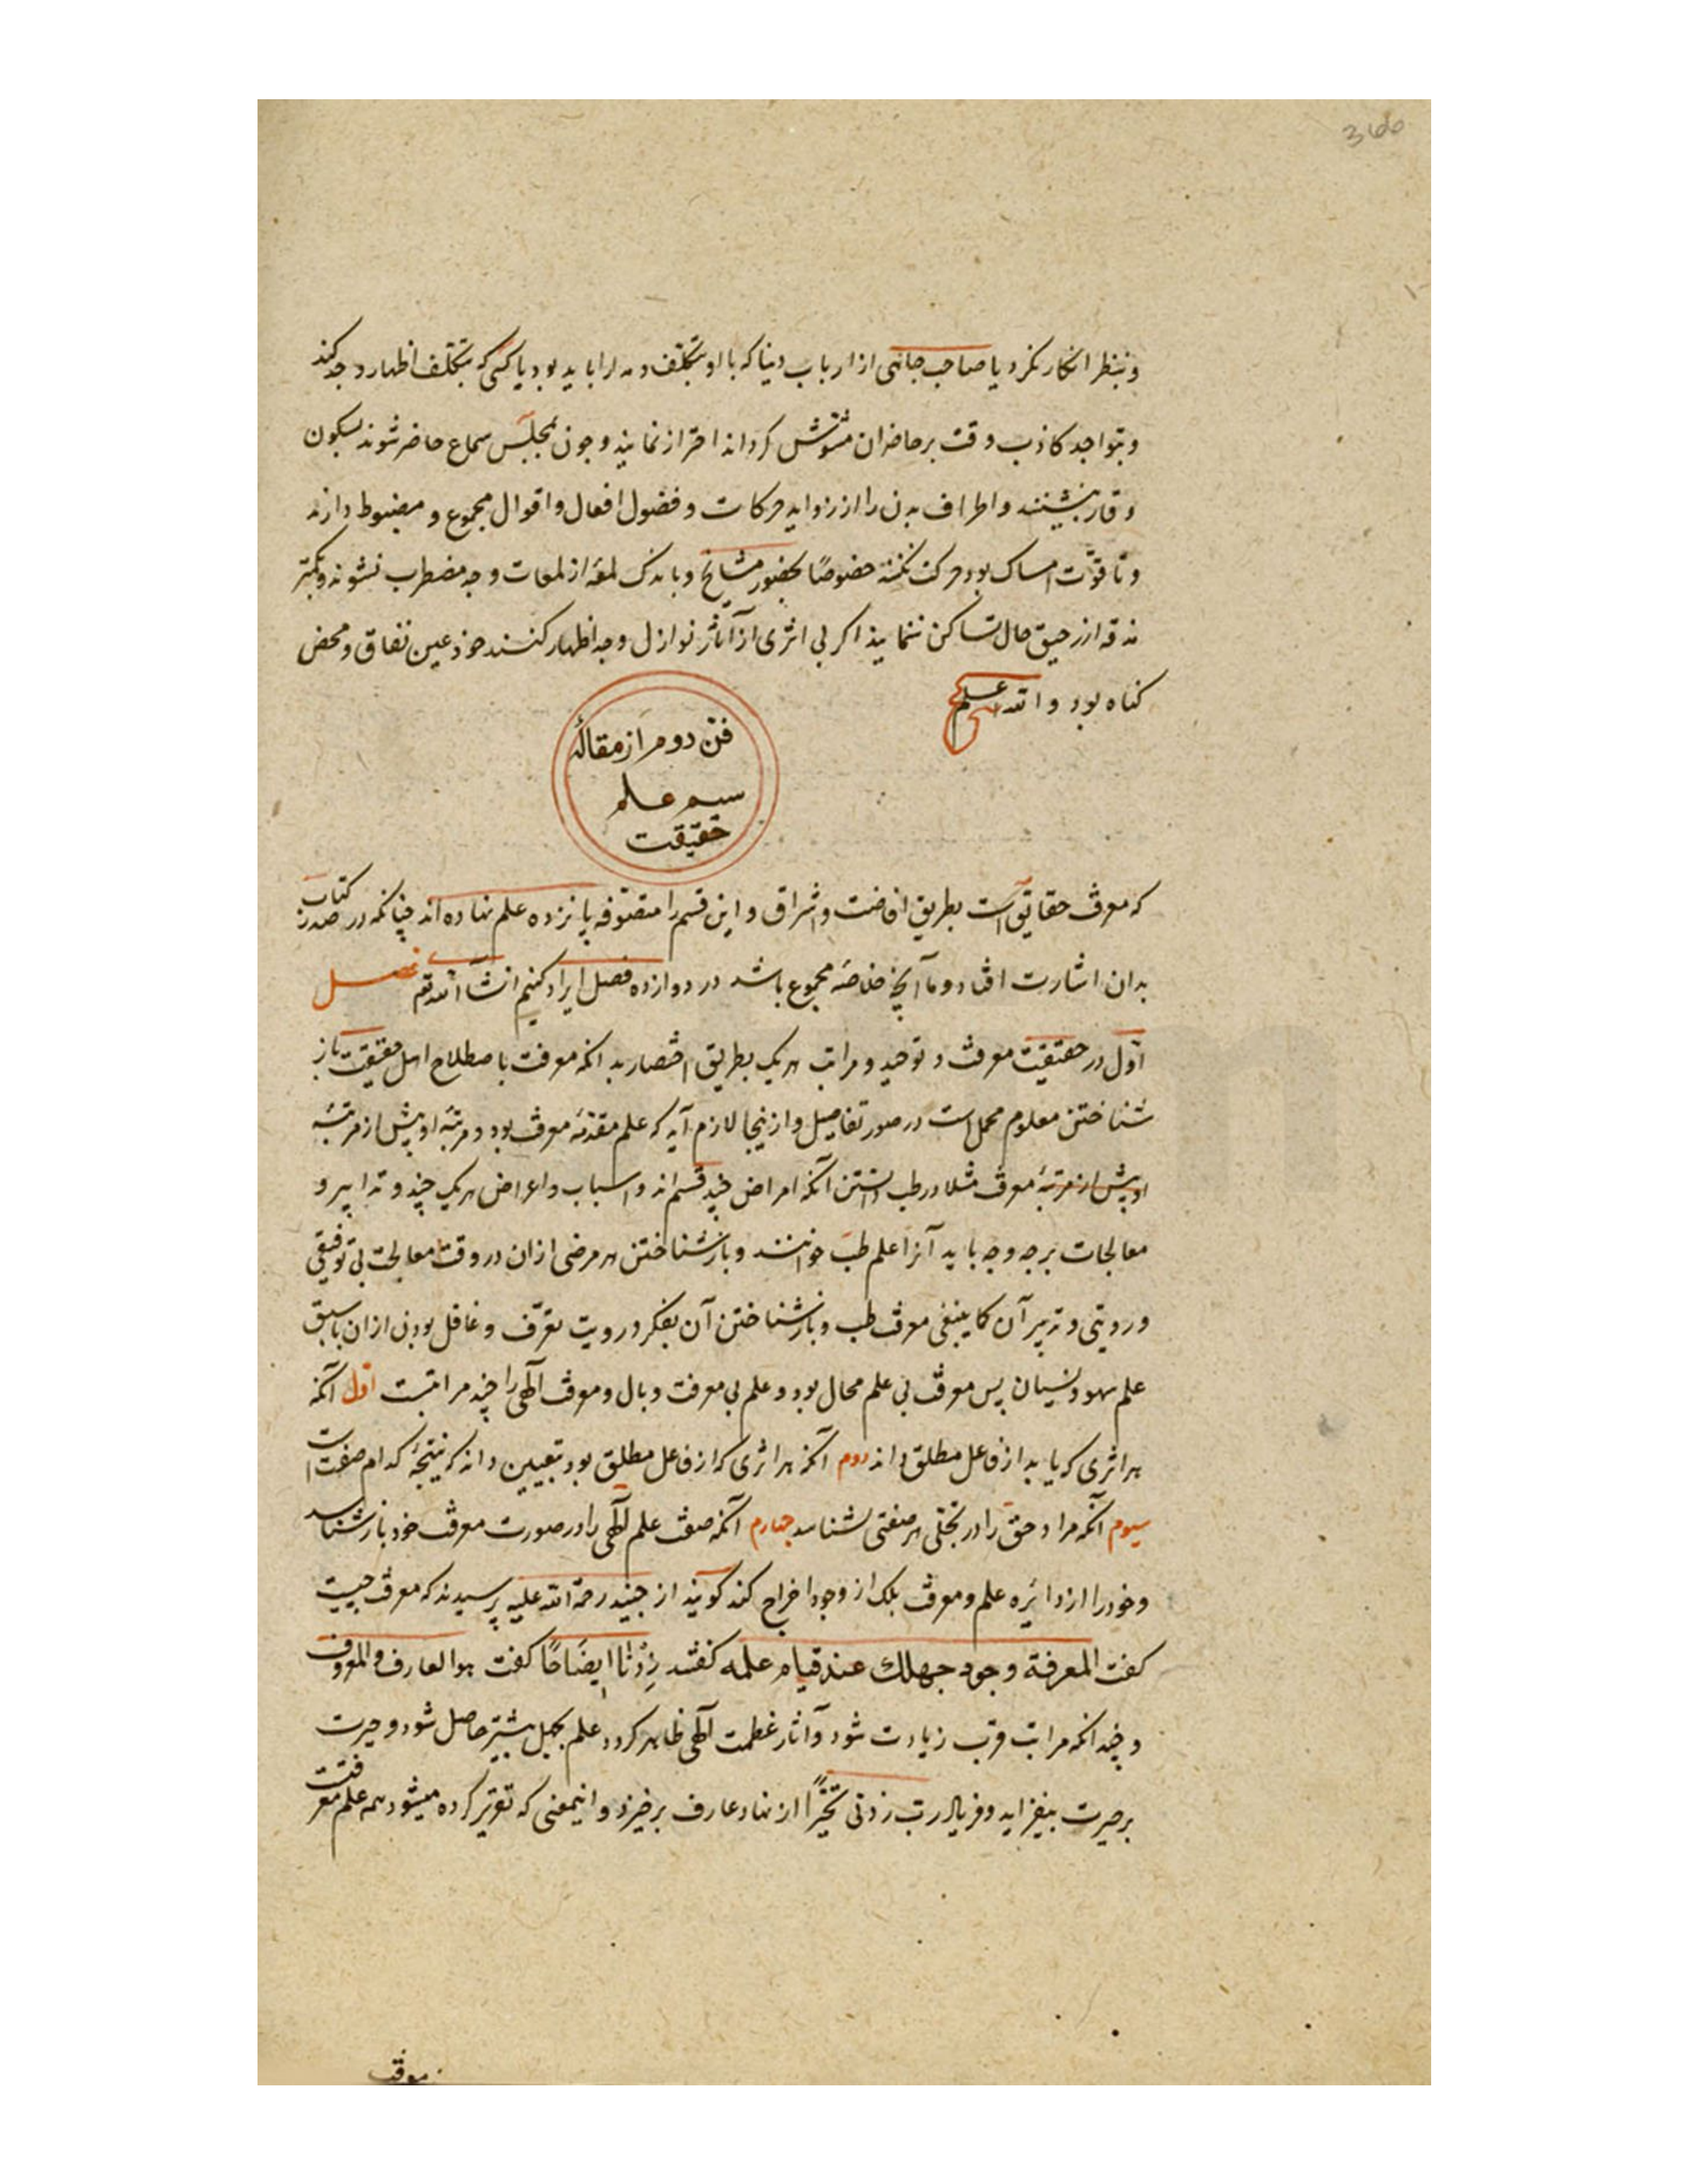 366
و بنظر انکار نگرد یا صاحب جاهی از ارباب دنیا که با او بتکلف و مدارا باید بود یا کسی که بتکلف اظهار وجد کند
و بتواجد کاذب وقت بر حاضران مشوش گرداند احتراز نمایند و چون بمجلس سماع حاضر شوند بسکون
و وقار بنشینند و اطراف بدن را از زواید حرکات و فضول افعال و اقوال مجموع و مضبوط دارند
و تا قوّت امساک بود حرکت نکنند خصوصًا بحضور مشایخ و باندک لمعه از لمعات وجد مضطرب نشوند و بکمتر
مذقه از رحیق حال تساکن ننمایند اگر بی اثری از آثار نوازل وجد اظهار کنند خود عین نفاق و محض
گناه بود والله اعلم
فنّ دوم از مقالهٔ
سیم علم
حقیقت
که معرفت حقایق است بطریق افاضت و اشراق و این قسم را متصوّفه پانزده علم نهاده‌اند چنانکه در صدر کتاب
بدان اشارت افتاد و ما آنچ خلاصهٔ مجموع باشد در دوازده فصل ایراد کنیم انشاء الله تع فصل
اوّل در حقیقت معرفت و توحید و مراتب هر یک بطریق اختصار بدانکه معرفت باصطلاح اهل حقیقت باز
شناختن معلوم مجمل است در صور تفاصیل و ازینجا لازم آید که علم مقدّمهٔ معرفت بود و مرتبهٔ او پیش از مرتبهٔ
او پیش از مرتبهٔ معرفت مثلا در طب دانستن آنکه امراض چند قسم‌اند و اسباب و اعراض هر یک چند و تدابیر و
معالجات بر چه وجه باید آنرا علم طب خوانند و باز شناختن هر مرضی ازان در وقت معالجت بی توقیفی
و رویتی و تدبیر آن کما ینبغی معرفت طب و باز شناختن آن بفکر و رویت تعرّف و غافل بودن ازان با سبق
علم سهو و نسیان پس معرفت بی علم محال بود و علم بی معرفت وبال و معرفت الهی را چند مراتبست اوّل آنکه
هر اثری که یابد از فاعل مطلق داند دوم آنکه هر اثری که از فاعل مطلق بود بتعیین داند که نتیجهٔ کدام صفت است
سیوم آنکه مراد حق را در تجلّی هر صفتی بشناسد چهارم آنکه صفت علم الهی را در صورت معرفت خود باز شناسد
و خود را از دائره علم و معرفت بلک از وجود اخراج کند گویند از جنید رحمة الله علیه پرسیدند که معرفت چیست
گفت المعرفة وجود جهلك عند قیام علمه گفتند زِدْنا ایضَاحًا گفت هو العارف و المعروف
و چندانکه مراتب قرب زیادت شود و آثار عظمت الهی ظاهر گردد علم بجهل بیشتر حاصل شود و حیرت
بر حیرت بیفزاید و فریاد رب زدنی تحیّرًا از نهاد عارف برخیزد و اینمعنی که تقریر کرده میشود همه علم معرفتست